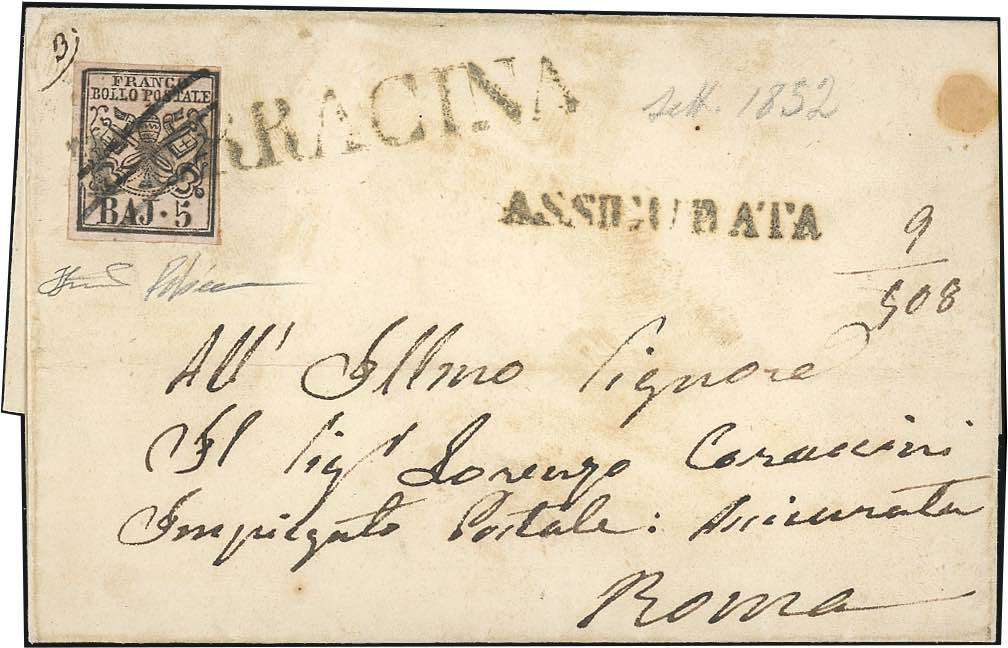 B
FRANCO
BOLLO POSTALE
BAJ · 5
TERRACINA
sett. 1852
ASSICURATA
9
508
All' Illmo Signore
Il Sigr Lorenzo
Impiegato Postale: Assicurata
Roma